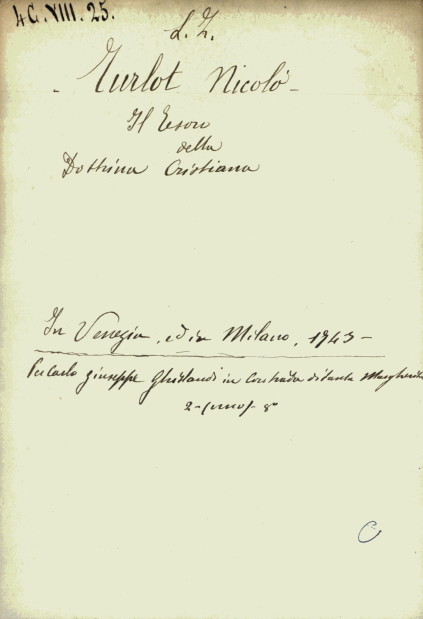 4C.VIII.25.
L. Z.
- Turlot Nicolò -
Il Tesoro
della
Dottrina Cristiana
In Venezia, ed in Milano, 1743 -
Per Carlo Giuseppe Ghislandi in Contrada di Santa Margherita
8°
C